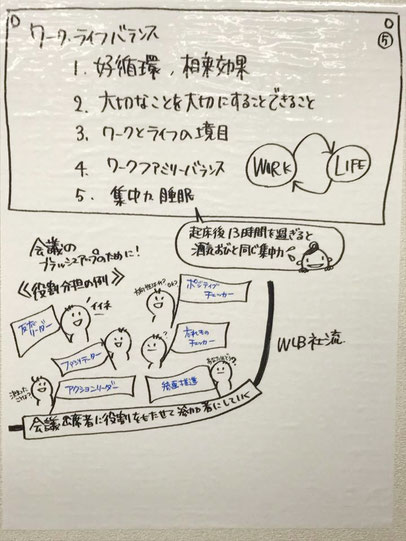 ⑤
ワーク・ライフバランス
1. 好循環、相乗効果
2. 大切なことを大切にすることできること
3. ワークとライフの境目
4. ワークファミリーバランス
5. 集中力 睡眠
WORK
LIFE
起床後13時間を過ぎると
酒気おびと同じ集中力
会議の
ブラッシュアップのために!
《役割分担の例》
イイネ
リーダー
ポジティブ
チェッカー
ファシリテーター
忘れもの
チェッカー
アクションリーダー
WLB社流
会議出席者に役割をもたせて参加者にしていく